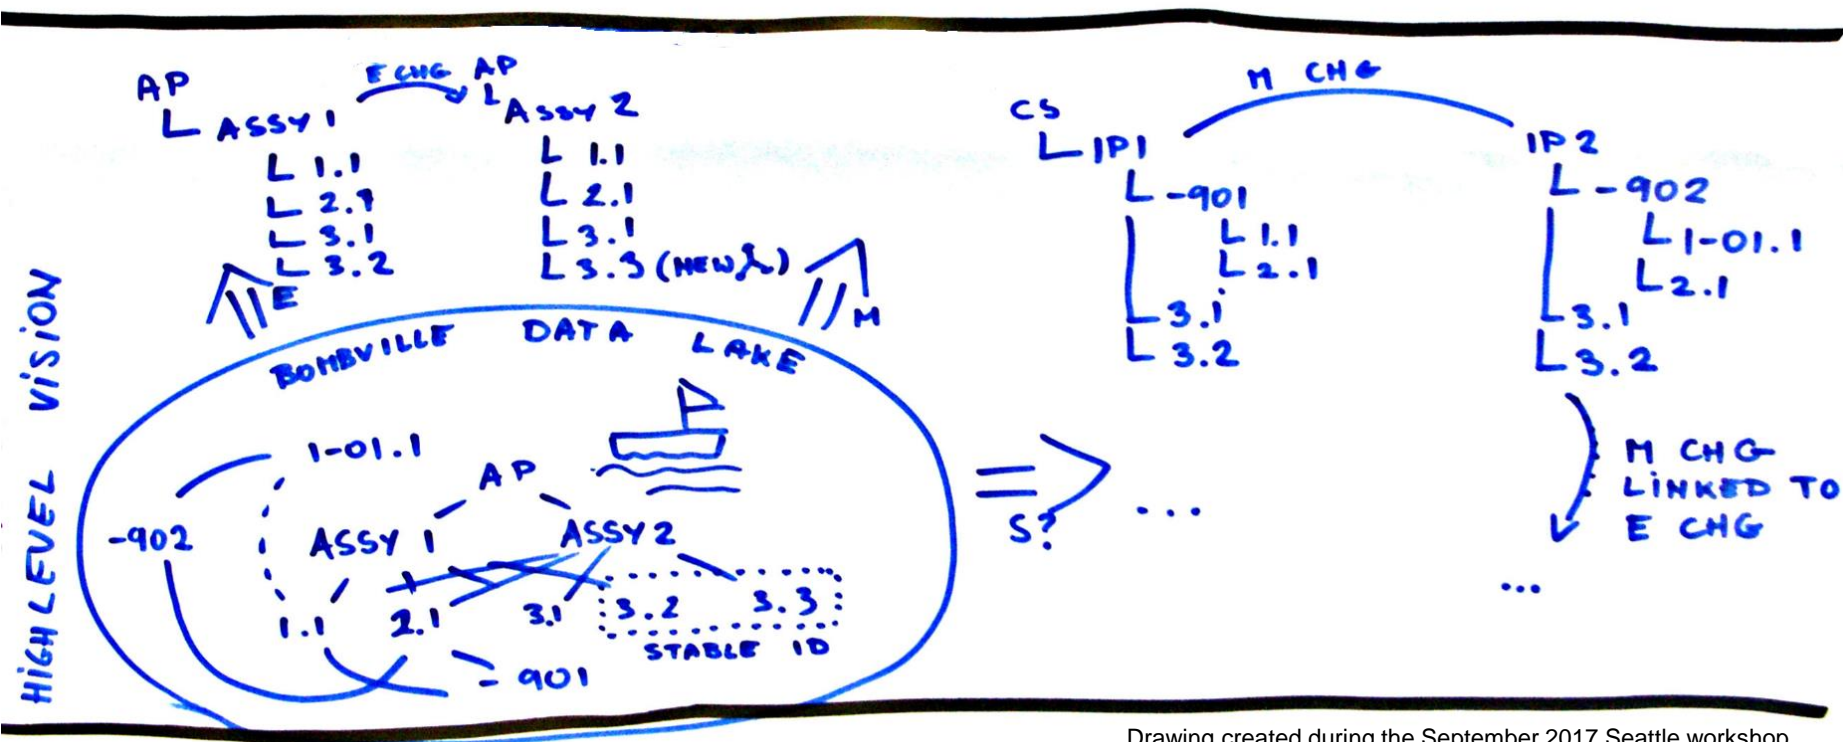 HIGH LEVEL VISION
AP
L ASSY 1
L 1.1
L 2.1
L 3.1
L 3.2
E CHG
AP
L ASSY 2
L 1.1
L 2.1
L 3.1
L 3.3 (NEW)
E
M
BOMBVILLE DATA LAKE
1-01.1
AP
-902
ASSY 1
ASSY 2
1.1
2.1
3.1
3.2
3.3
STABLE ID
- 901
S?
...
M CHG
CS
L IP1
L -901
L 1.1
L 2.1
L 3.1
L 3.2
IP2
L -902
L 1-01.1
L 2.1
L 3.1
L 3.2
M CHG
LINKED TO
E CHG
...
Drawing created during the September 2017 Seattle workshop